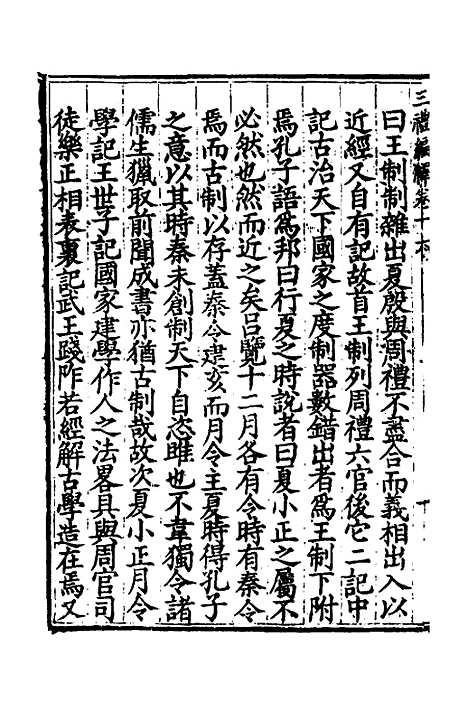 三禮編繹卷十六
曰王制制雜出夏殷與周禮不盡合而義相出入以
近經又自有記故首王制列周禮六官後它二記中
記古治天下國家之度制器數錯出者為王制下附
焉孔子語為邦曰行夏之時說者曰夏小正之屬不
必然也然而近之矣呂覽十二月各有令時有秦令
焉而古制以存蓋秦令建亥而月令主夏時得孔子
之意以其時秦未創制天下自恣睢也不韋獨令諸
儒生獵取前聞成書亦猶古制哉故次夏小正月令
學記王世子記國家建學作人之法畧具與周官司
徒樂正相表裏記武王踐阼若經解古學造在焉又